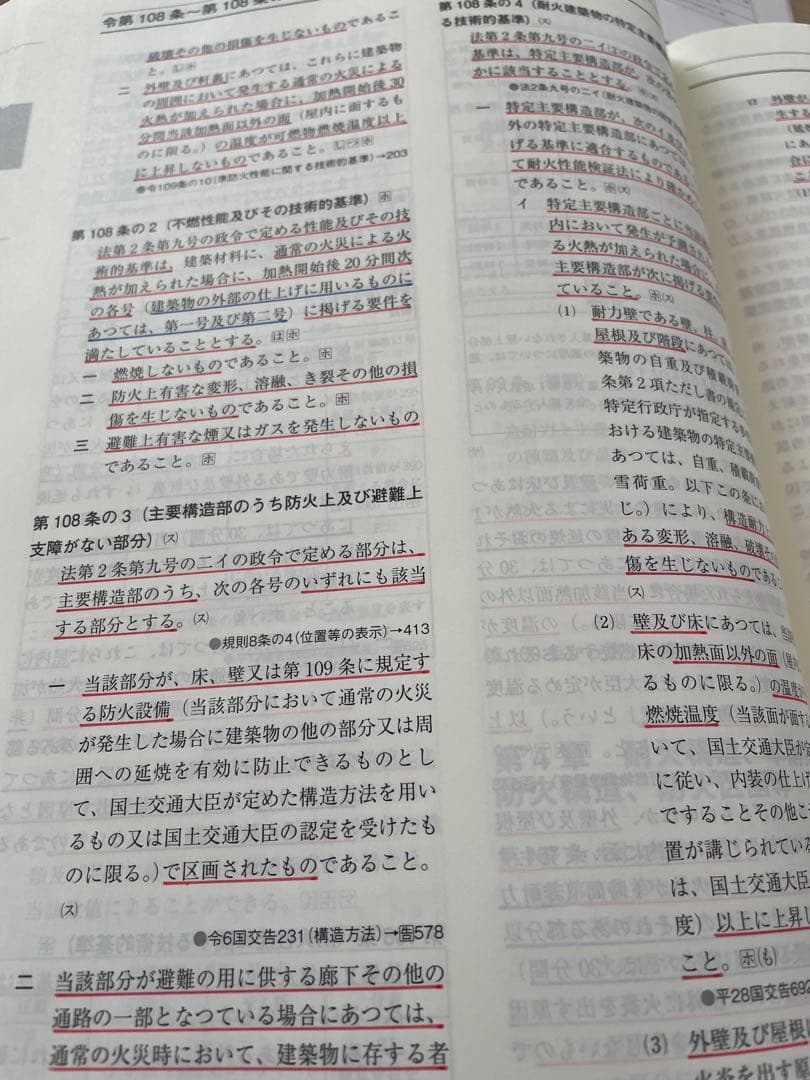 令第108条～第108条の
破壊その他の損傷を生じないものであるこ
と。
二 外壁及び軒裏にあつては、これらに建築物
の周囲において発生する通常の火災による
火熱が加えられた場合に、加熱開始後30
分間当該加熱面以外の面（屋内に面するも
のに限る。）の温度が可燃物燃焼温度以上
に上昇しないものであること。
●令109条の10（準防火性能に関する技術的基準）→203
第108条の2（不燃性能及びその技術的基準）ホ
法第2条第九号の政令で定める性能及びその技
術的基準は、建築材料に、通常の火災による火
熱が加えられた場合に、加熱開始後20分間次
の各号（建築物の外部の仕上げに用いるものに
あつては、第一号及び第二号）に掲げる要件を
満たしていることとする。はホ
一 燃焼しないものであること。ホ
二 防火上有害な変形、溶融、き裂その他の損
傷を生じないものであること。ホ
三 避難上有害な煙又はガスを発生しないもの
であること。ホ
第108条の3（主要構造部のうち防火上及び避難上
支障がない部分）(ス)
法第2条第九号の二イの政令で定める部分は、
主要構造部のうち、次の各号のいずれにも該当
する部分とする。(ス)
●規則8条の4（位置等の表示）→413
一 当該部分が、床、壁又は第109条に規定す
る防火設備（当該部分において通常の火災
が発生した場合に建築物の他の部分又は周
囲への延焼を有効に防止できるものとし
て、国土交通大臣が定めた構造方法を用い
るもの又は国土交通大臣の認定を受けたも
のに限る。）で区画されたものであること。
(ス)
●令6国交告231（構造方法）→告578
二 当該部分が避難の用に供する廊下その他の
通路の一部となつている場合にあつては、
通常の火災時において、建築物に存する者
第108条の4（耐火建築物の特定主要構造
る技術的基準）(ス)
法第2条第九号の二イ(2)の政令で
基準は、特定主要構造部が、次の
かに該当することとする。
●法2条九号の二イ（耐火建築物の
一 特定主要構造部が、次のイ及び
外の特定主要構造部にあつては
げる基準に適合するものであるこ
て耐火性能検証法により確かめ
であること。ホ(ス)
イ 特定主要構造部ごとに当該
内において発生が予測される
る火熱が加えられた場合に、
主要構造部が次に掲げる要件
ていること。ホ(ス)
(1) 耐力壁である壁、柱、
屋根及び階段にあつては
築物の自重及び積載荷重
条第2項ただし書の規定
特定行政庁が指定する多
おける建築物の特定主要構
あつては、自重、積載荷重
雪荷重。以下この条にお
じ。）により、構造耐力上
ある変形、溶融、破壊その
傷を生じないものであること
(ス)
(2) 壁及び床にあつては、
床の加熱面以外の面（屋
るものに限る。）の温度が
燃焼温度（当該面が面する
いて、国土交通大臣が定
に従い、内装の仕上げ
でることその他こ
置が講じられている
は、国土交通大臣が
度）以上に上昇し
こと。ホ(も)
●平28国交告692
(3) 外壁及び屋根に
火炎を出す原
ロ 外壁が